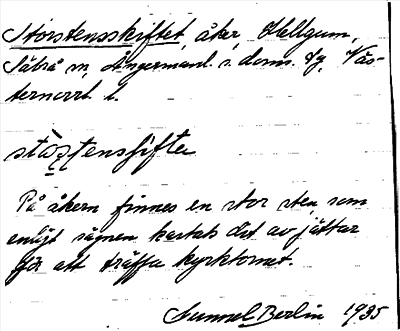 Storstensskiftet, åker, Hellgum,
Säbrå sn, Ångermanl. s. doms. fg, Väs-
ternorrl. l.
På åkern finnes en stor sten som
enligt sägnen kastats dit av jättar
för att träffa kyrktornet.
Gunnel Berlin 1935